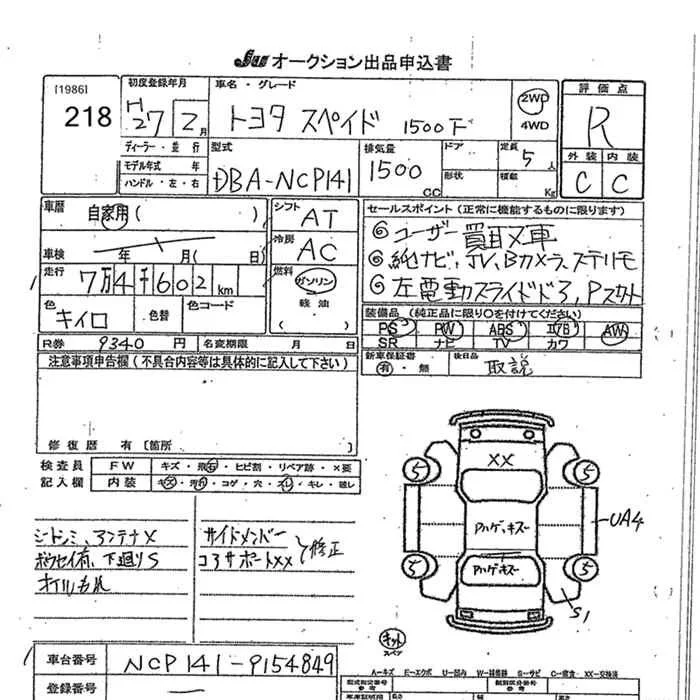 JU オークション出品申込書
[1986]
218
初度登録年月
H27 2月
車名・グレード
トヨタ スペイド 1500F
2WD
4WD
評価点
R
外装 内装
C C
ディーラー・並行
モデル年式 年
ハンドル・左・右
型式
DBA-NCP141
排気量
1500 CC
ドア
形状
定員
5人
積載
Kg
車歴
自家用 ( )
車検
年 月( 日)
走行
7万4千602km
色
キイロ
色替
色コード
シフト
AT
冷房
AC
燃料
ガソリン
軽油
( )
セールスポイント (正常に機能するものに限ります)
◎ユーザー買取車
◎純ナビ、TV、Bカメラ、ステリモ
◎左電動スライドドア、Pスタート
装備品 (純正品に限り○を付けてください)
PS PW ABS エアB AW
SR ナビ TV カワ
新車保証書
有・無
後日品
取説
R券 9340円
名変期限 月 日
注意事項申告欄 (不具合内容等は具体的に記入して下さい)
修復歴 有 [箇所 ]
検査員
記入欄
FW
キズ・飛石・ヒビ割・リペア跡・×要
内装
キズ・汚れ・コゲ・穴・スレ・キレ・破レ
シートシミ、アンテナX
下廻りS
オイルもれ
サイドメンバー
コアサポートXX
修正
XX
Aハゲ、キズ
Aハゲキズ
5
5
5
5
UA4
S1
キット
スペア
車台番号
NCP141-9154849
登録番号
—
A—キズ E—エクボ U—凹み W—補修跡 S—サビ C—腐食 XX—交換済
型式指定番号
類別区分番号